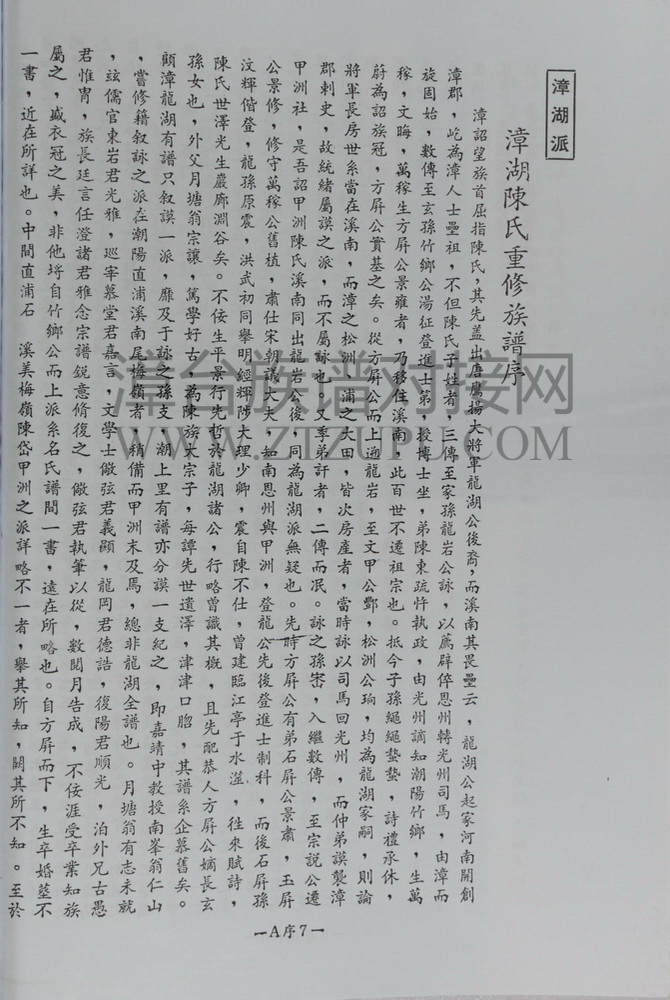 漳湖派
漳湖陳氏重修族譜序
漳詔望族首屈指陳氏，其先蓋出唐鷹揚大將軍龍湖公後裔，而溪南其畏壘云，龍湖公起家河南開創
漳郡，屹為漳人士壘祖，不但陳氏子姓者，三傳至家孫龍岩公詠，以薦辟倅恩州轉光州司馬，由漳而
旋固始，數傳至玄孫竹鄉公湯征登進士第，授博士坐，弟陳東疏忤執政，由光州謫知潮陽竹鄉，生萬
稼，文晦，萬稼生方屏公景雍者，乃移住溪南，此百世不遷祖宗也。抵今子孫繩繩蟄蟄，詩禮承休，
蔚為詔族冠，方屏公實基之矣。從方屏公而上遡龍岩，至文甲公酆，松洲公珦，均為龍湖家嗣，則論
將軍長房世系當在溪南，而漳之松洲，浦之大田，皆次房產者，當時詠以司馬回光州，而仲弟謨襲漳
郡刺史，故統緒屬謨之派，而不屬詠也。又季弟訏者，二傳而泯。詠之孫寀，入繼數傳，至宗說公遷
甲洲社，是吾詔甲洲陳氏溪南同出龍岩公後，同為龍湖派無疑也。先時方屏公有弟石屏公景肅，玉屏
公景修，修守萬稼公舊植，肅仕宋朝議大夫，知南恩州與甲洲，登龍公先後登進士制科，而後石屏孫
汶輝偕登，龍孫原震，洪武初同舉明經輝陟大理少卿，震自陳不仕，曾建臨江亭于水滋，徃來賦詩，
陳氏世澤光生嚴廊淵谷矣。不佞生平景行先哲於龍湖諸公，行略曾識其概，且先配恭人方屏公嫡長玄
孫女也，外父月塘翁宗讓，篤學好古，為陳族大宗子，每譚先世遺澤，津津口膾，其譜系企慕舊矣。
顧漳龍湖有譜只叙謨一派，靡及于詠之孫支，潮上里有譜亦分謨一支紀之，即嘉靖中教授南峯翁仁山
，嘗修籍叙詠之派在潮陽直浦溪南尾梅嶺者，稍備而甲洲末及焉，總非龍湖全譜也。月塘翁有志未就
，玆儒官東岩君光雅，巡宰慕堂君嘉言，文學士儆弦君義顯，龍岡君德誥，復陽君順光，泊外兄古愚
君惟胄，族長廷言任澄諸君雅念宗譜銳意脩復之，儆弦君執筆以從，數閱月告成，不佞涯受卒業知族
屬之，盛衣冠之美，非他埒自竹鄉公而上派系名氏譜間一書，遠在所略也。自方屏而下，生卒婚塟不
一書，近在所詳也。中間直浦石　溪美梅嶺陳岱甲洲之派詳略不一者，舉其所知，闕其所不知。至於
—A序7—
漳台族谱对接网
WWW.ZTZUPU.COM